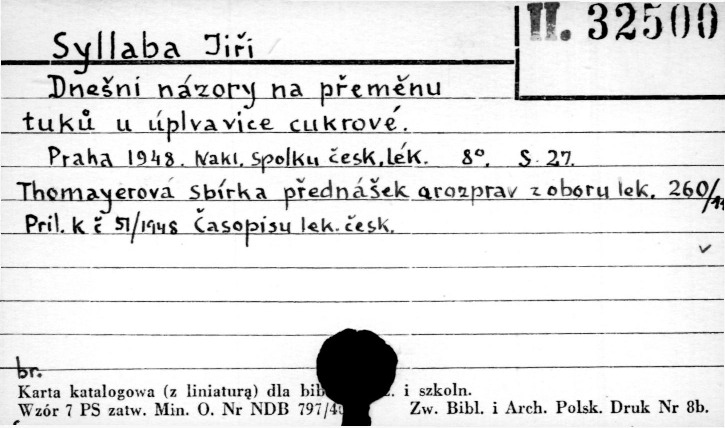 II. 32500
Syllaba Jiří
Dnešní názory na přeměnu
tuků u úplvavice cukrové.
Praha 1948. Nakl. spolku česk. lék. 8°. S. 27.
Thomayerová sbírka přednášek a rozprav z oboru lek. 260/
Pril. k č 51/1948 Časopisu lek. česk.
br.
Karta katalogowa (z liniaturą) dla i szkoln.
Wzór 7 PS zatw. Min. O. Nr NDB Zw. Bibl. i Arch. Polsk. Druk Nr 8b.